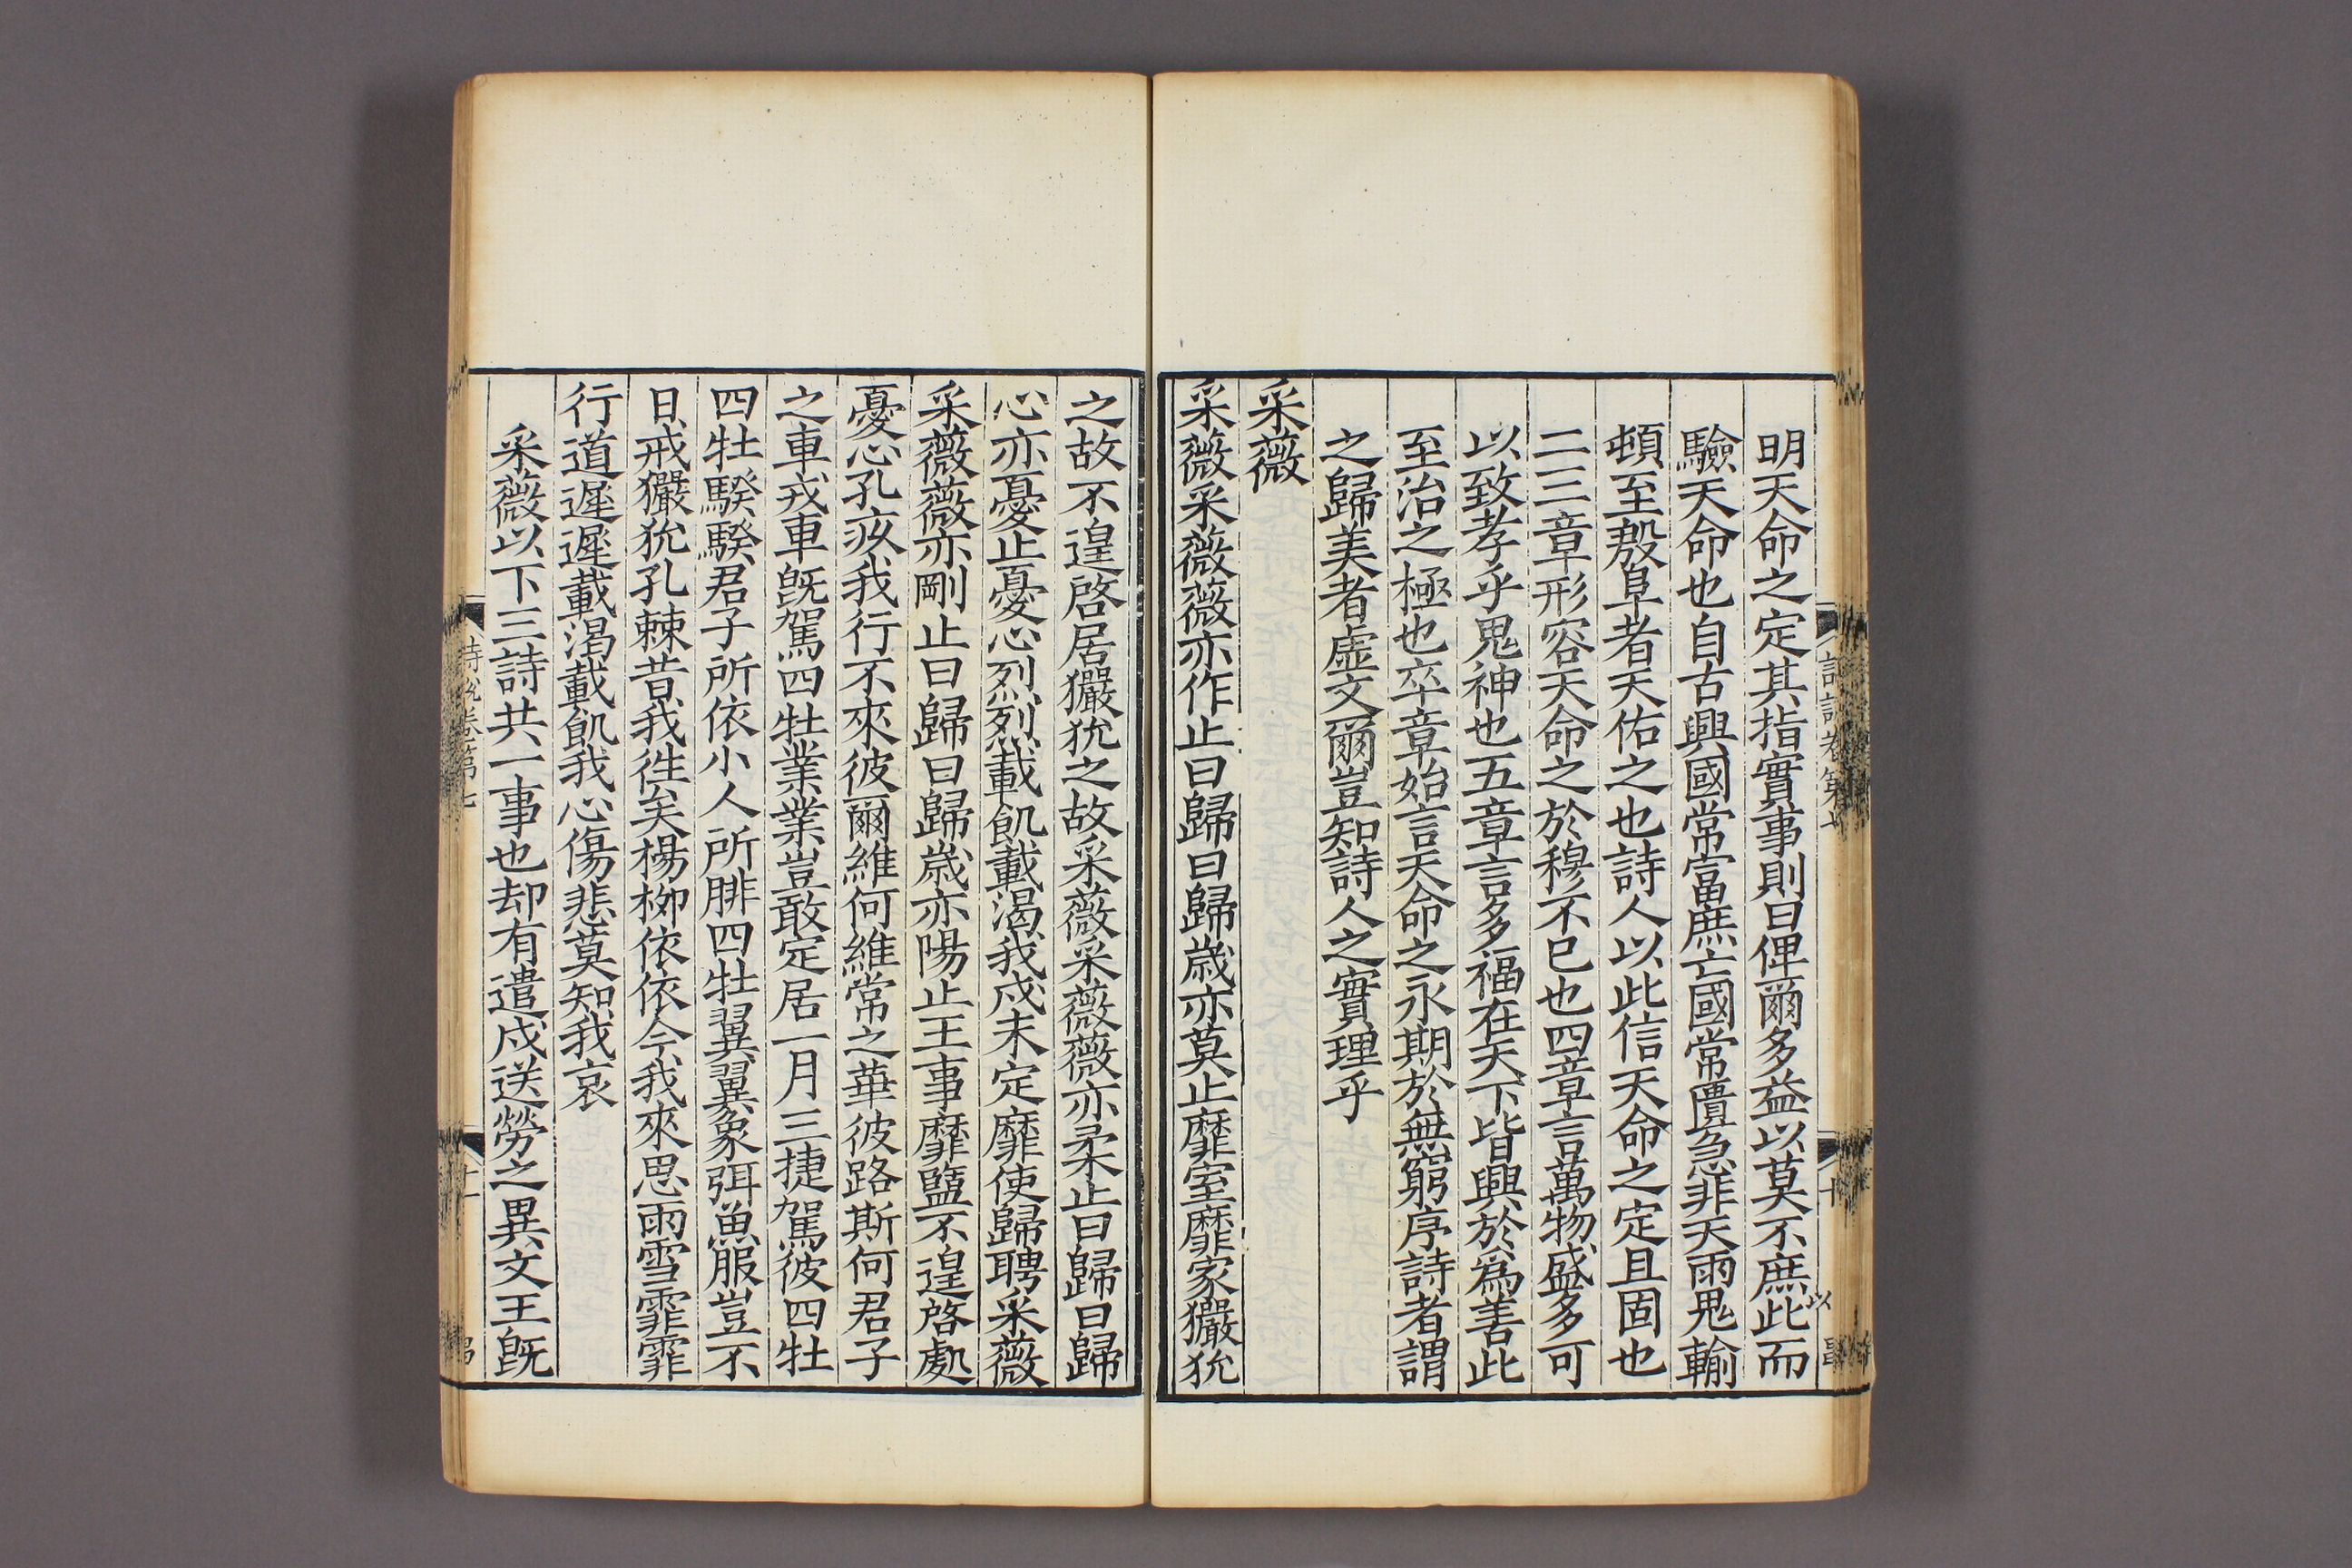 明天命之定其指實事則曰俾爾多益以莫不庶此而
驗天命也自古興國常富庶亡國常匱急非天雨鬼輸
頓至殷阜者天佑之也詩人以此信天命之定且固也
二三章形容天命之於穆不已也四章言萬物盛多可
以致孝乎鬼神也五章言多福在天下皆興於爲善此
至治之極也卒章始言天命之永期於無窮序詩者謂
之歸美者虛文爾豈知詩人之實理乎
采薇
采薇采薇薇亦作止曰歸曰歸歲亦莫止靡室靡家玁狁
之故不遑啓居玁狁之故采薇采薇薇亦柔止曰歸曰歸
心亦憂止憂心烈烈載飢載渴我戍未定靡使歸聘采薇
采薇薇亦剛止曰歸曰歸歲亦陽止王事靡盬不遑啓處
憂心孔疚我行不來彼爾維何維常之華彼路斯何君子
之車戎車旣駕四牡業業豈敢定居一月三捷駕彼四牡
四牡騤騤君子所依小人所腓四牡翼翼象弭魚服豈不
日戒玁狁孔棘昔我徃矣楊栁依依今我來思雨雪霏霏
行道遲遲載渴載飢我心傷悲莫知我哀
采薇以下三詩共一事也却有遣戍送勞之異文王旣
詩說卷第七
十一